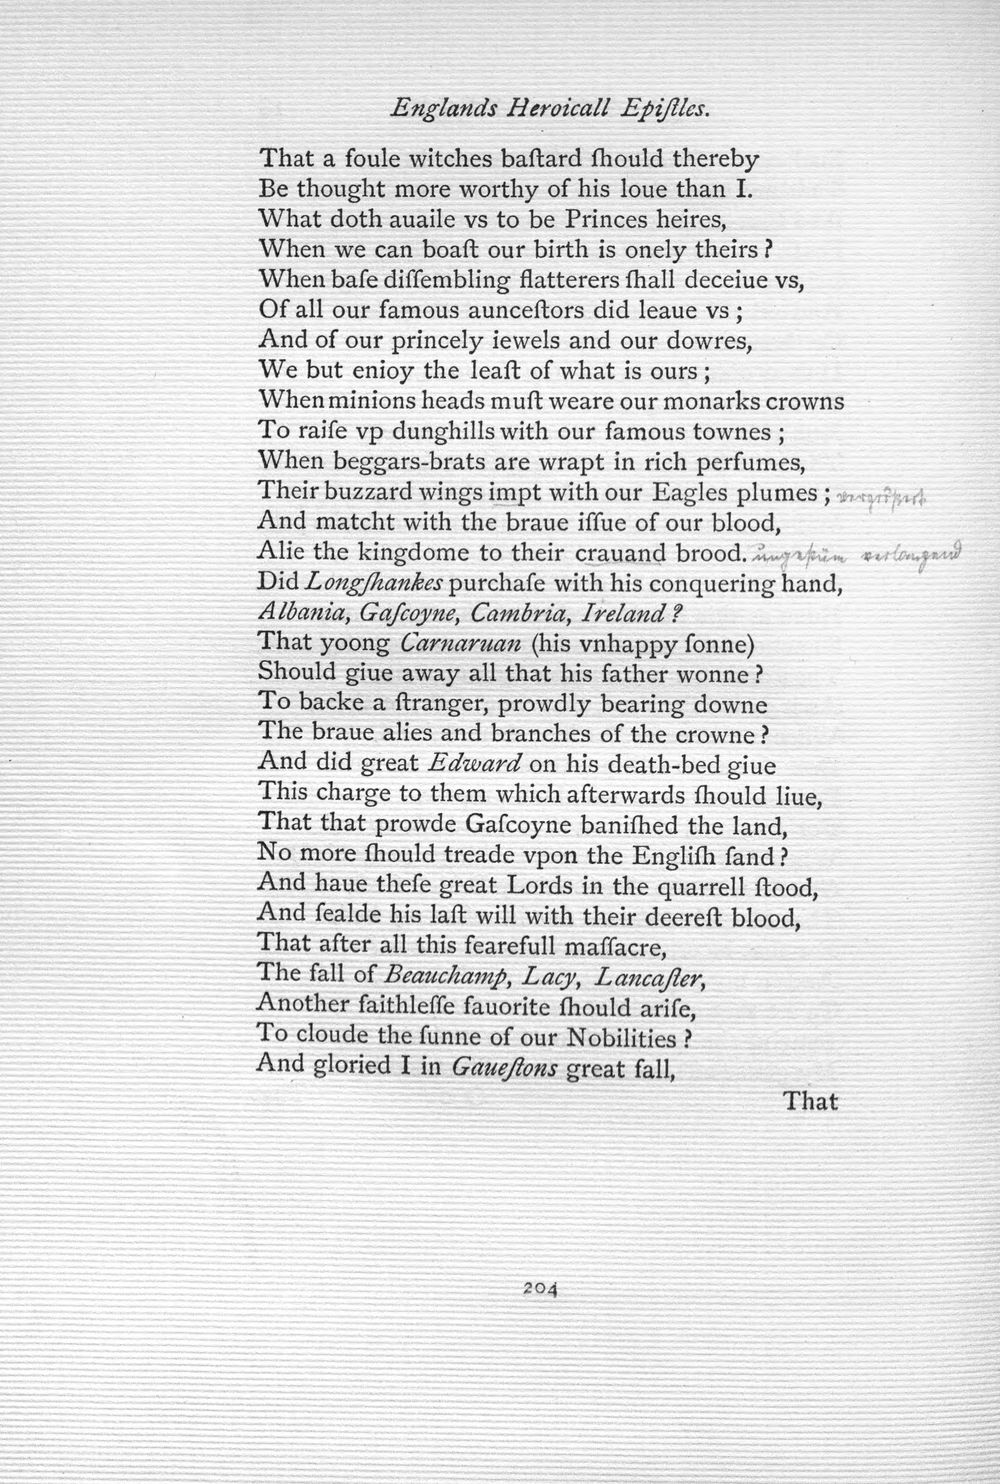 Englands Heroicall Epiſtles.
That a foule witches baſtard ſhould thereby
Be thought more worthy of his loue than I.
What doth auaile vs to be Princes heires,
When we can boaſt our birth is onely theirs ?
When baſe diſſembling flatterers ſhall deceiue vs,
Of all our famous aunceſtors did leaue vs ;
And of our princely iewels and our dowres,
We but enioy the leaſt of what is ours ;
When minions heads muſt weare our monarks crowns
To raiſe vp dunghills with our famous townes ;
When beggars-brats are wrapt in rich perfumes,
Their buzzard wings impt with our Eagles plumes ; vergrößert
And matcht with the braue iſſue of our blood,
Alie the kingdome to their crauand brood. ungestüm verlangend
Did Longſhankes purchaſe with his conquering hand,
Albania, Gaſcoyne, Cambria, Ireland ?
That yoong Carnaruan (his vnhappy ſonne)
Should giue away all that his father wonne ?
To backe a ſtranger, prowdly bearing downe
The braue alies and branches of the crowne ?
And did great Edward on his death-bed giue
This charge to them which afterwards ſhould liue,
That that prowde Gaſcoyne baniſhed the land,
No more ſhould treade vpon the Engliſh ſand ?
And haue theſe great Lords in the quarrell ſtood,
And ſealde his laſt will with their deereſt blood,
That after all this fearefull maſſacre,
The fall of Beauchamp, Lacy, Lancaſter,
Another faithleſſe fauorite ſhould ariſe,
To cloude the ſunne of our Nobilities ?
And gloried I in Gaueſtons great fall,
That
204